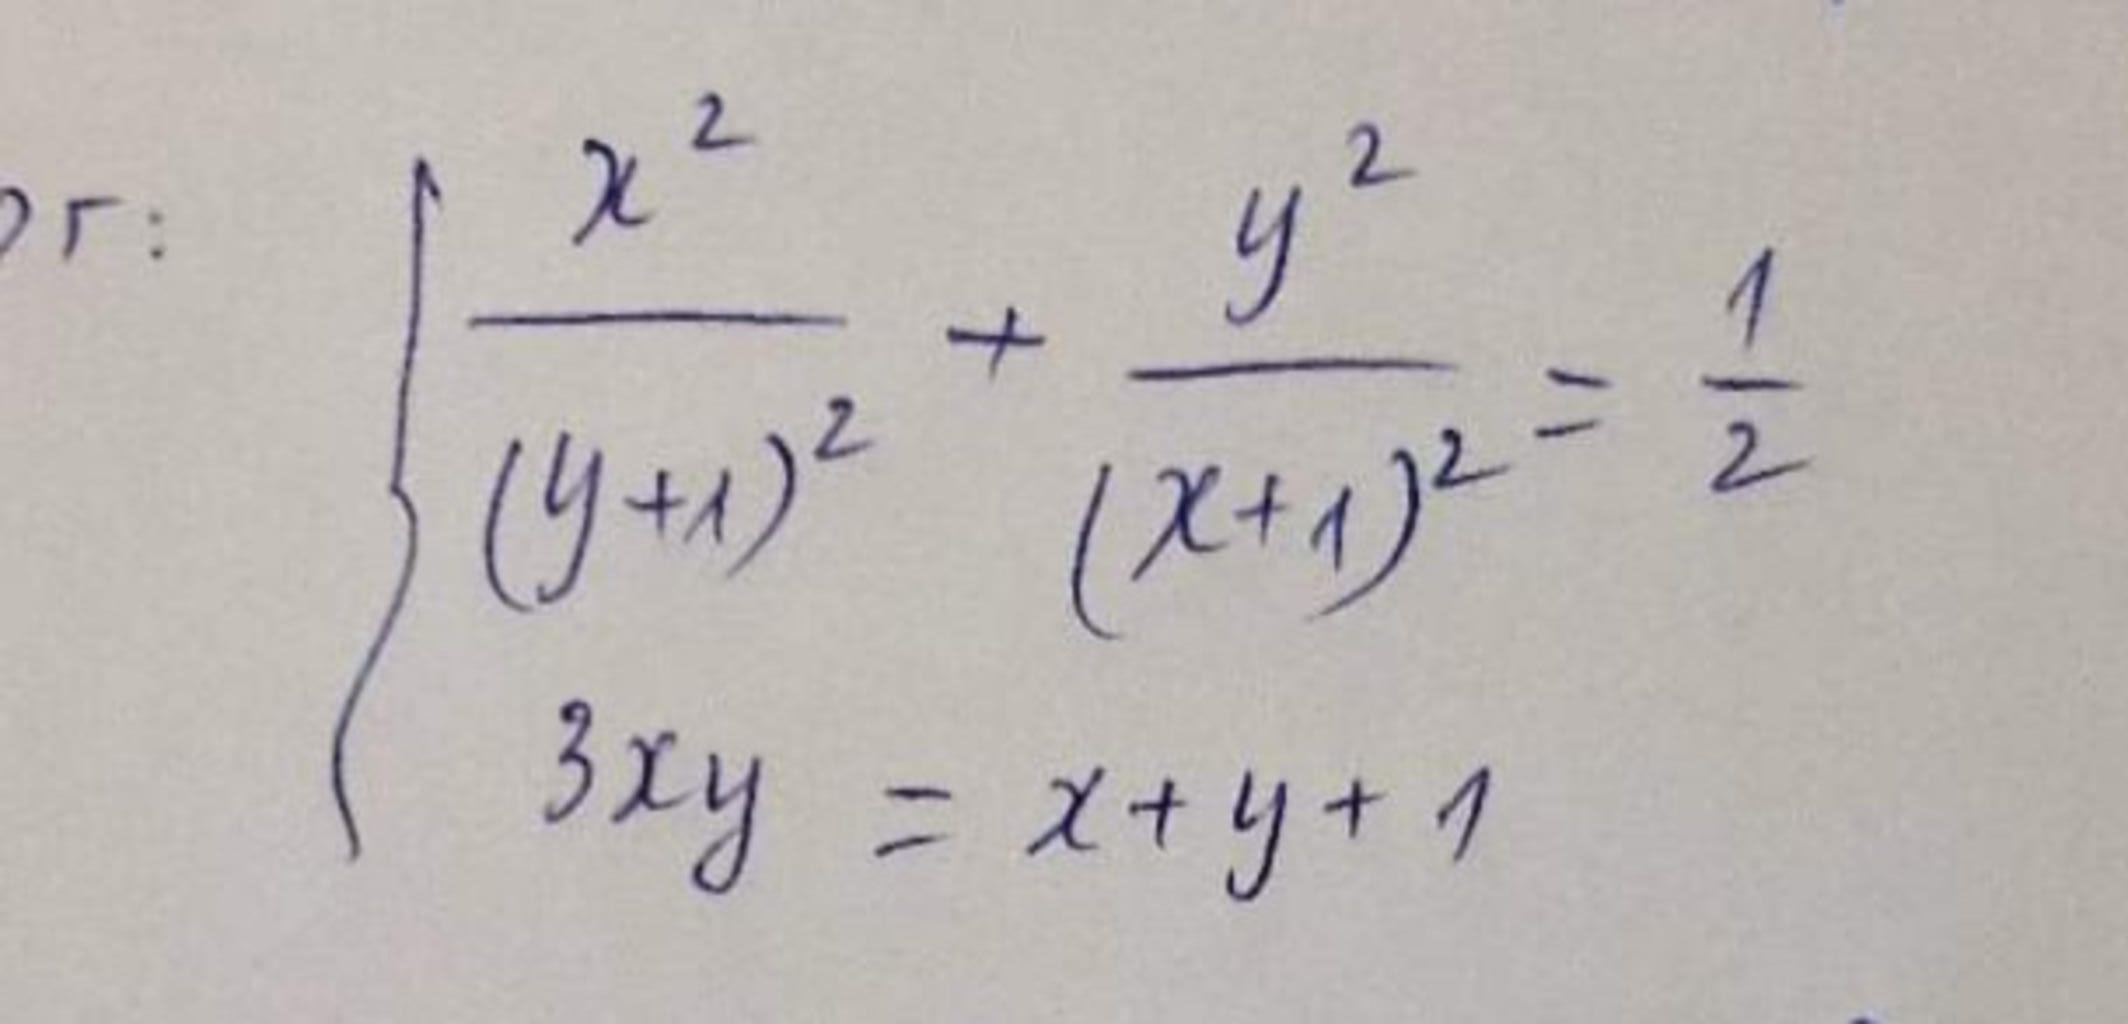 x²/(y+1)² + y²/(x+1)² = 1/2
3xy = x+y+1